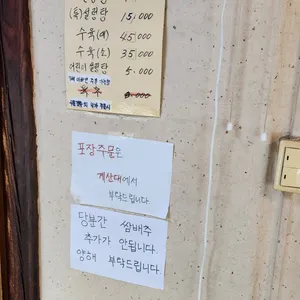 (특)설렁탕 15,000
수육(대) 45,000
수육(소) 35,000
어린이 설렁탕 5,000
포장주문은
계산대에서
부탁드립니다.
당분간 쌈배추
추가가 안됩니다.
양해 부탁드립니다.